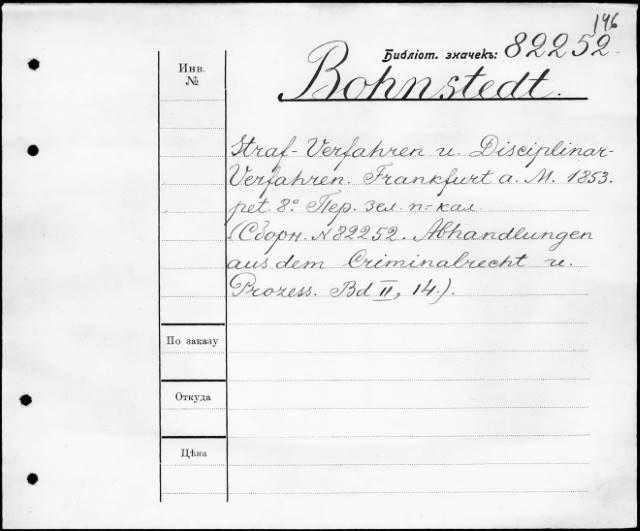 146
Библіот. значекъ: 82252.
Инв. №
Bohnstedt.
Straf-Verfahren u. Disciplinar-
Verfahren. Frankfurt a. M. 1853.
pet. 8º Пер. зел. п=кал.
(Сборн. №82252. Abhandlungen
aus dem Criminalrecht u.
Prozess. Bd II, 14.).
По заказу
Откуда
Цѣна